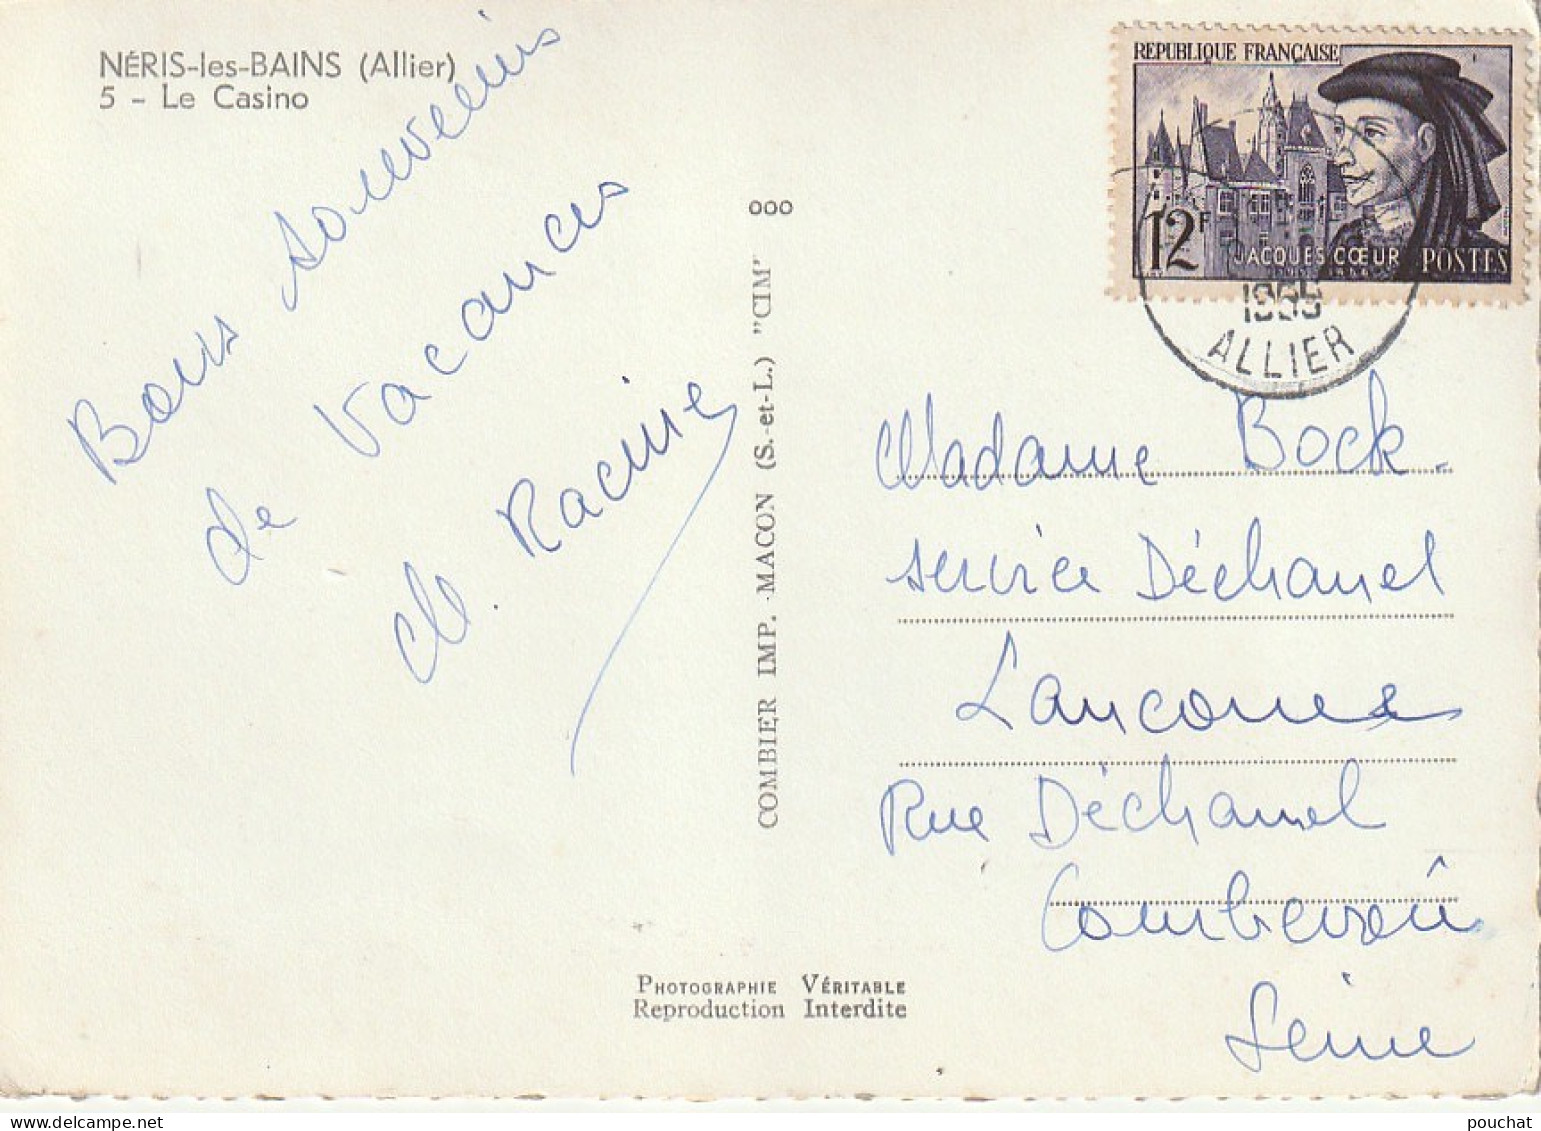 NÉRIS-les-BAINS (Allier)
5 - Le Casino
Bons souvenirs
de vacances
M. Racine
COMBIER IMP. MACON (S.-et-L.) "CIM"
000
REPUBLIQUE FRANÇAISE
12F
JACQUES CŒUR
POSTES
1955
ALLIER
Madame Bock
service Déchanel
Lancome
Rue Déchanel
Courbevoie
Seine
PHOTOGRAPHIE VÉRITABLE
Reproduction Interdite
pouchat
delcampe.net